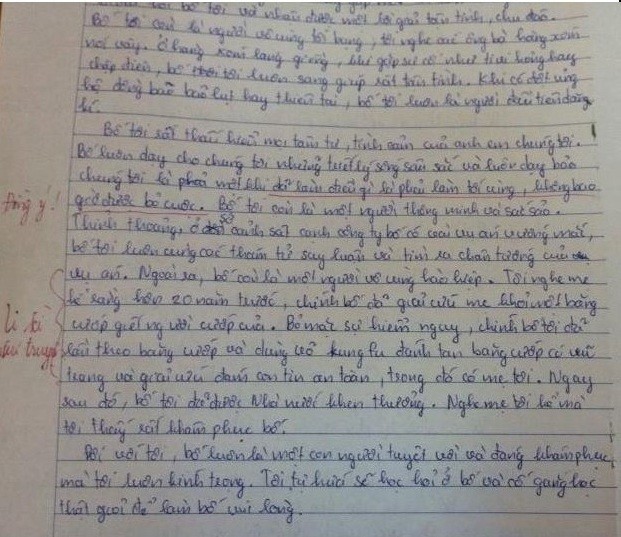 bố tôi và nhận được một lời giải tận tình, chu đáo.
Bố tôi còn là người vô cùng tốt bụng, tôi nghe các ông bà hàng xóm
nói vậy. Ở hàng xóm láng giềng, khi gặp sự cố như tivi hỏng hay
chập điện, bố tôi luôn sang giúp rất tận tình. Khi có đợt ủng
hộ đồng bào bão lụt hay thiên tai, bố tôi luôn là người đầu tiên đăng
kí.
Bố tôi rất thấu hiểu mọi tâm tư, tình cảm của anh em chúng tôi.
Bố luôn dạy cho chúng tôi những triết lý sống sâu sắc và luôn dạy bảo
chúng tôi là phải một khi đã làm điều gì là phải làm tới cùng, không bao
Đồng ý! giờ được bỏ cuộc. Bố tôi còn là một người thông minh và sắc sảo.
Thỉnh thoảng, ở sở cảnh sát cạnh công ty bố có vài vụ án vướng mắc,
bố tôi luôn cùng các thám tử suy luận và tìm ra chân tướng của
vụ án. Ngoài ra, bố còn là một người vô cùng hào hiệp. Tôi nghe mẹ
kể rằng hơn 20 năm trước, chính bố đã giải cứu mẹ khỏi một băng
Li kì cướp giết người cướp của. Bỏ mặc sự hiểm nguy, chính bố tôi đã
truyện lần theo băng cướp và dùng võ kung fu đánh tan băng cướp có vũ
trang và giải cứu đám con tin an toàn, trong đó có mẹ tôi. Ngay
sau đó, bố tôi đã được Nhà nước khen thưởng. Nghe mẹ tôi kể mà
tôi thấy rất khâm phục bố.
Đối với tôi, bố luôn là một con người tuyệt vời và đáng khâm phục
mà tôi luôn kính trọng. Tôi tự hứa sẽ học hỏi ở bố và cố gắng học
thật giỏi để làm bố vui lòng.